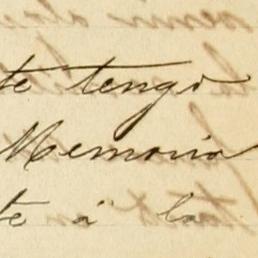 te tengo
Memoria
te á la